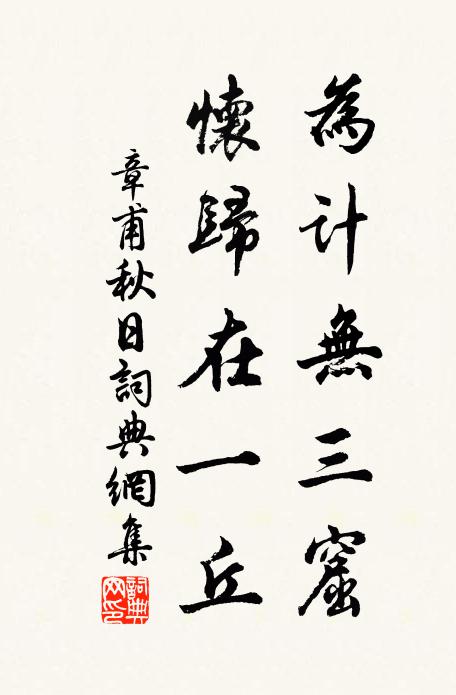 為計無三窟
懷歸在一丘
章甫秋日詞典網集
詞典网印